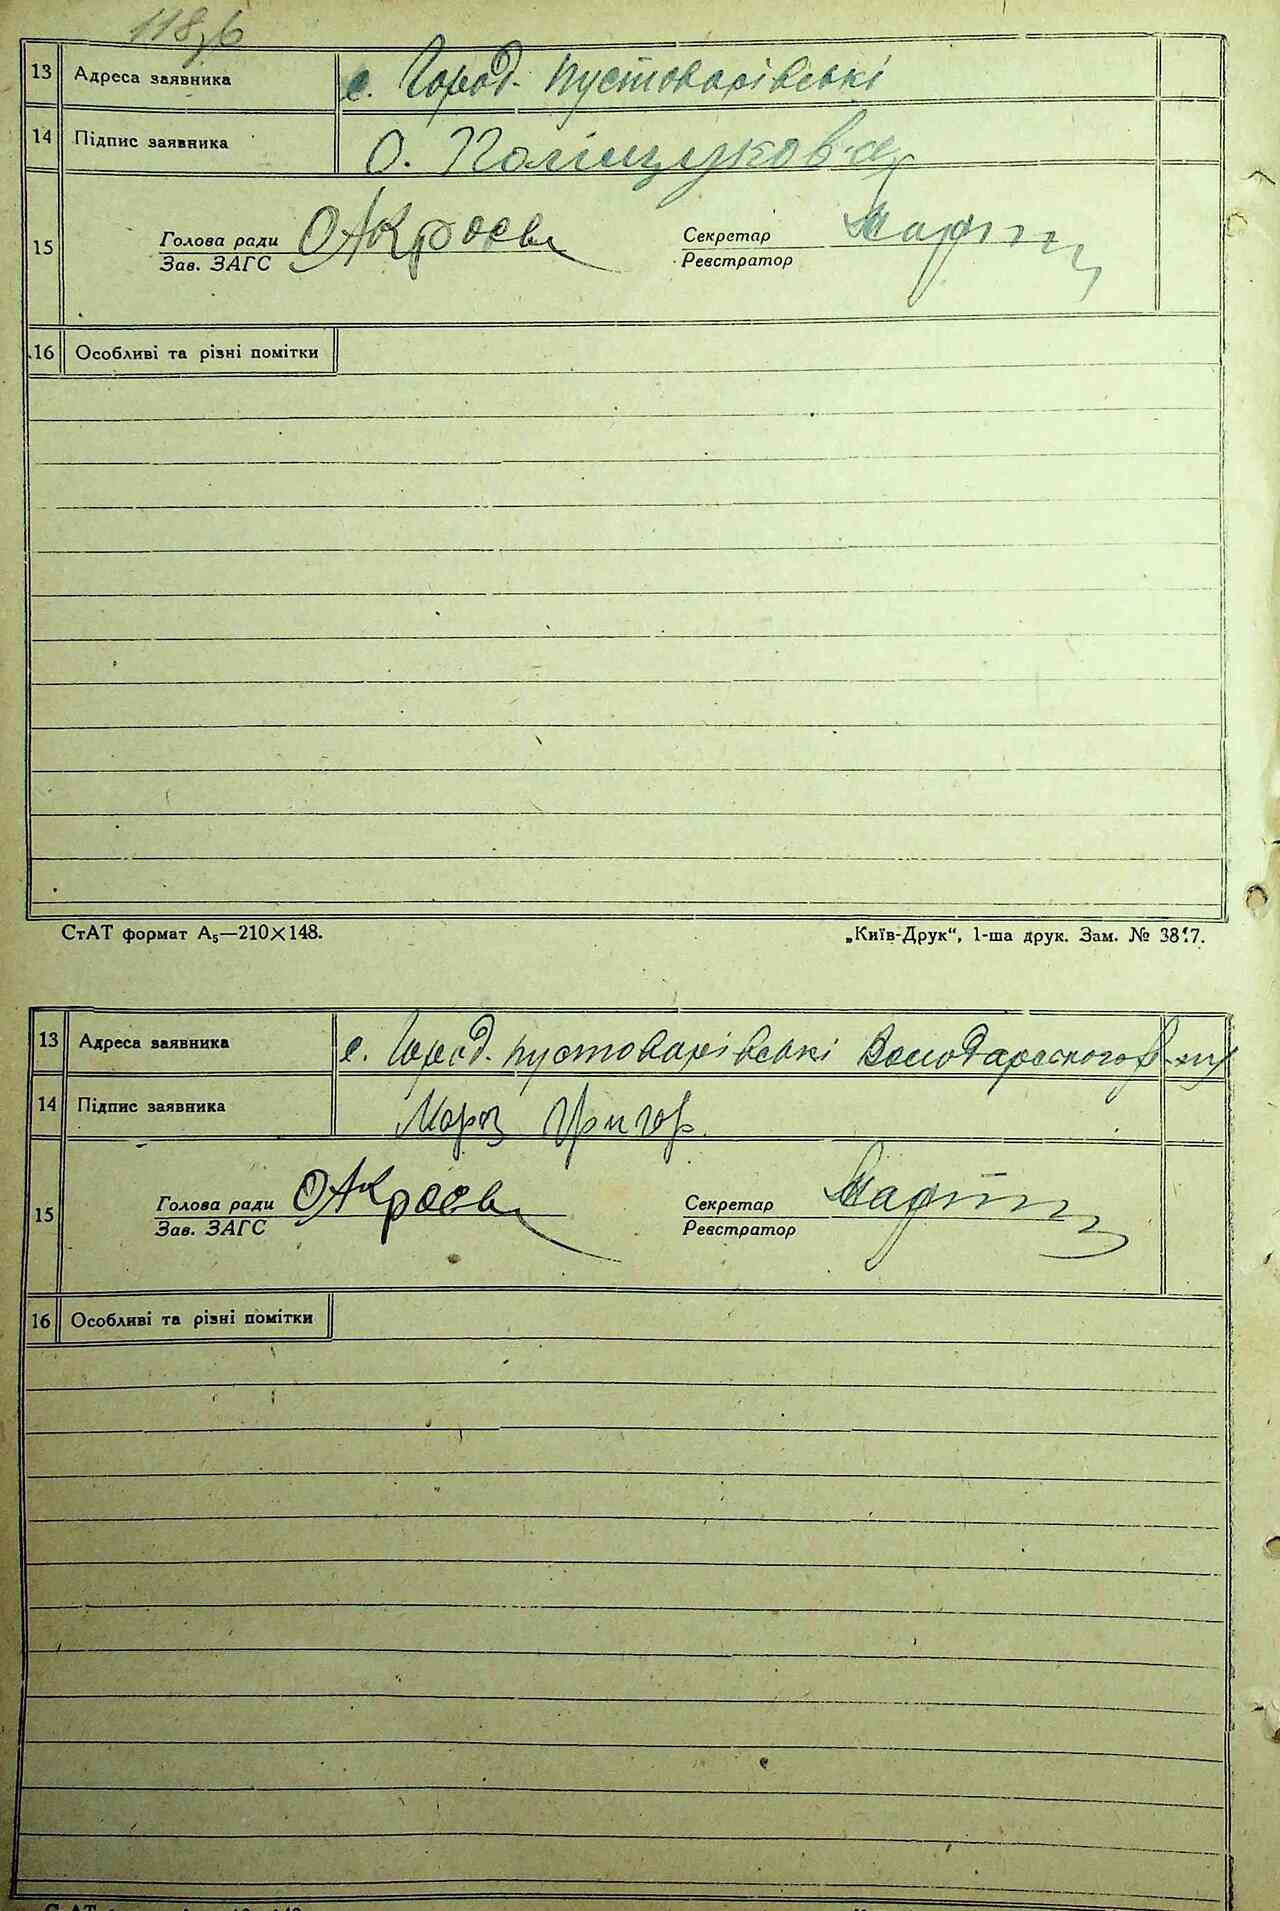 13 Адреса заявника с. Город. Пустоварівські
14 Підпис заявника О. Поліщукова
15 Голова ради Секретар
Зав. ЗАГС Реєстратор
16 Особливі та різні помітки
СтАТ формат А₅—210×148. „Київ-Друк“, 1-ша друк. Зам. №
13 Адреса заявника с. Город. Пустоварівські Володарського
14 Підпис заявника Мороз Григор.
15 Голова ради Секретар
Зав. ЗАГС Реєстратор
16 Особливі та різні помітки